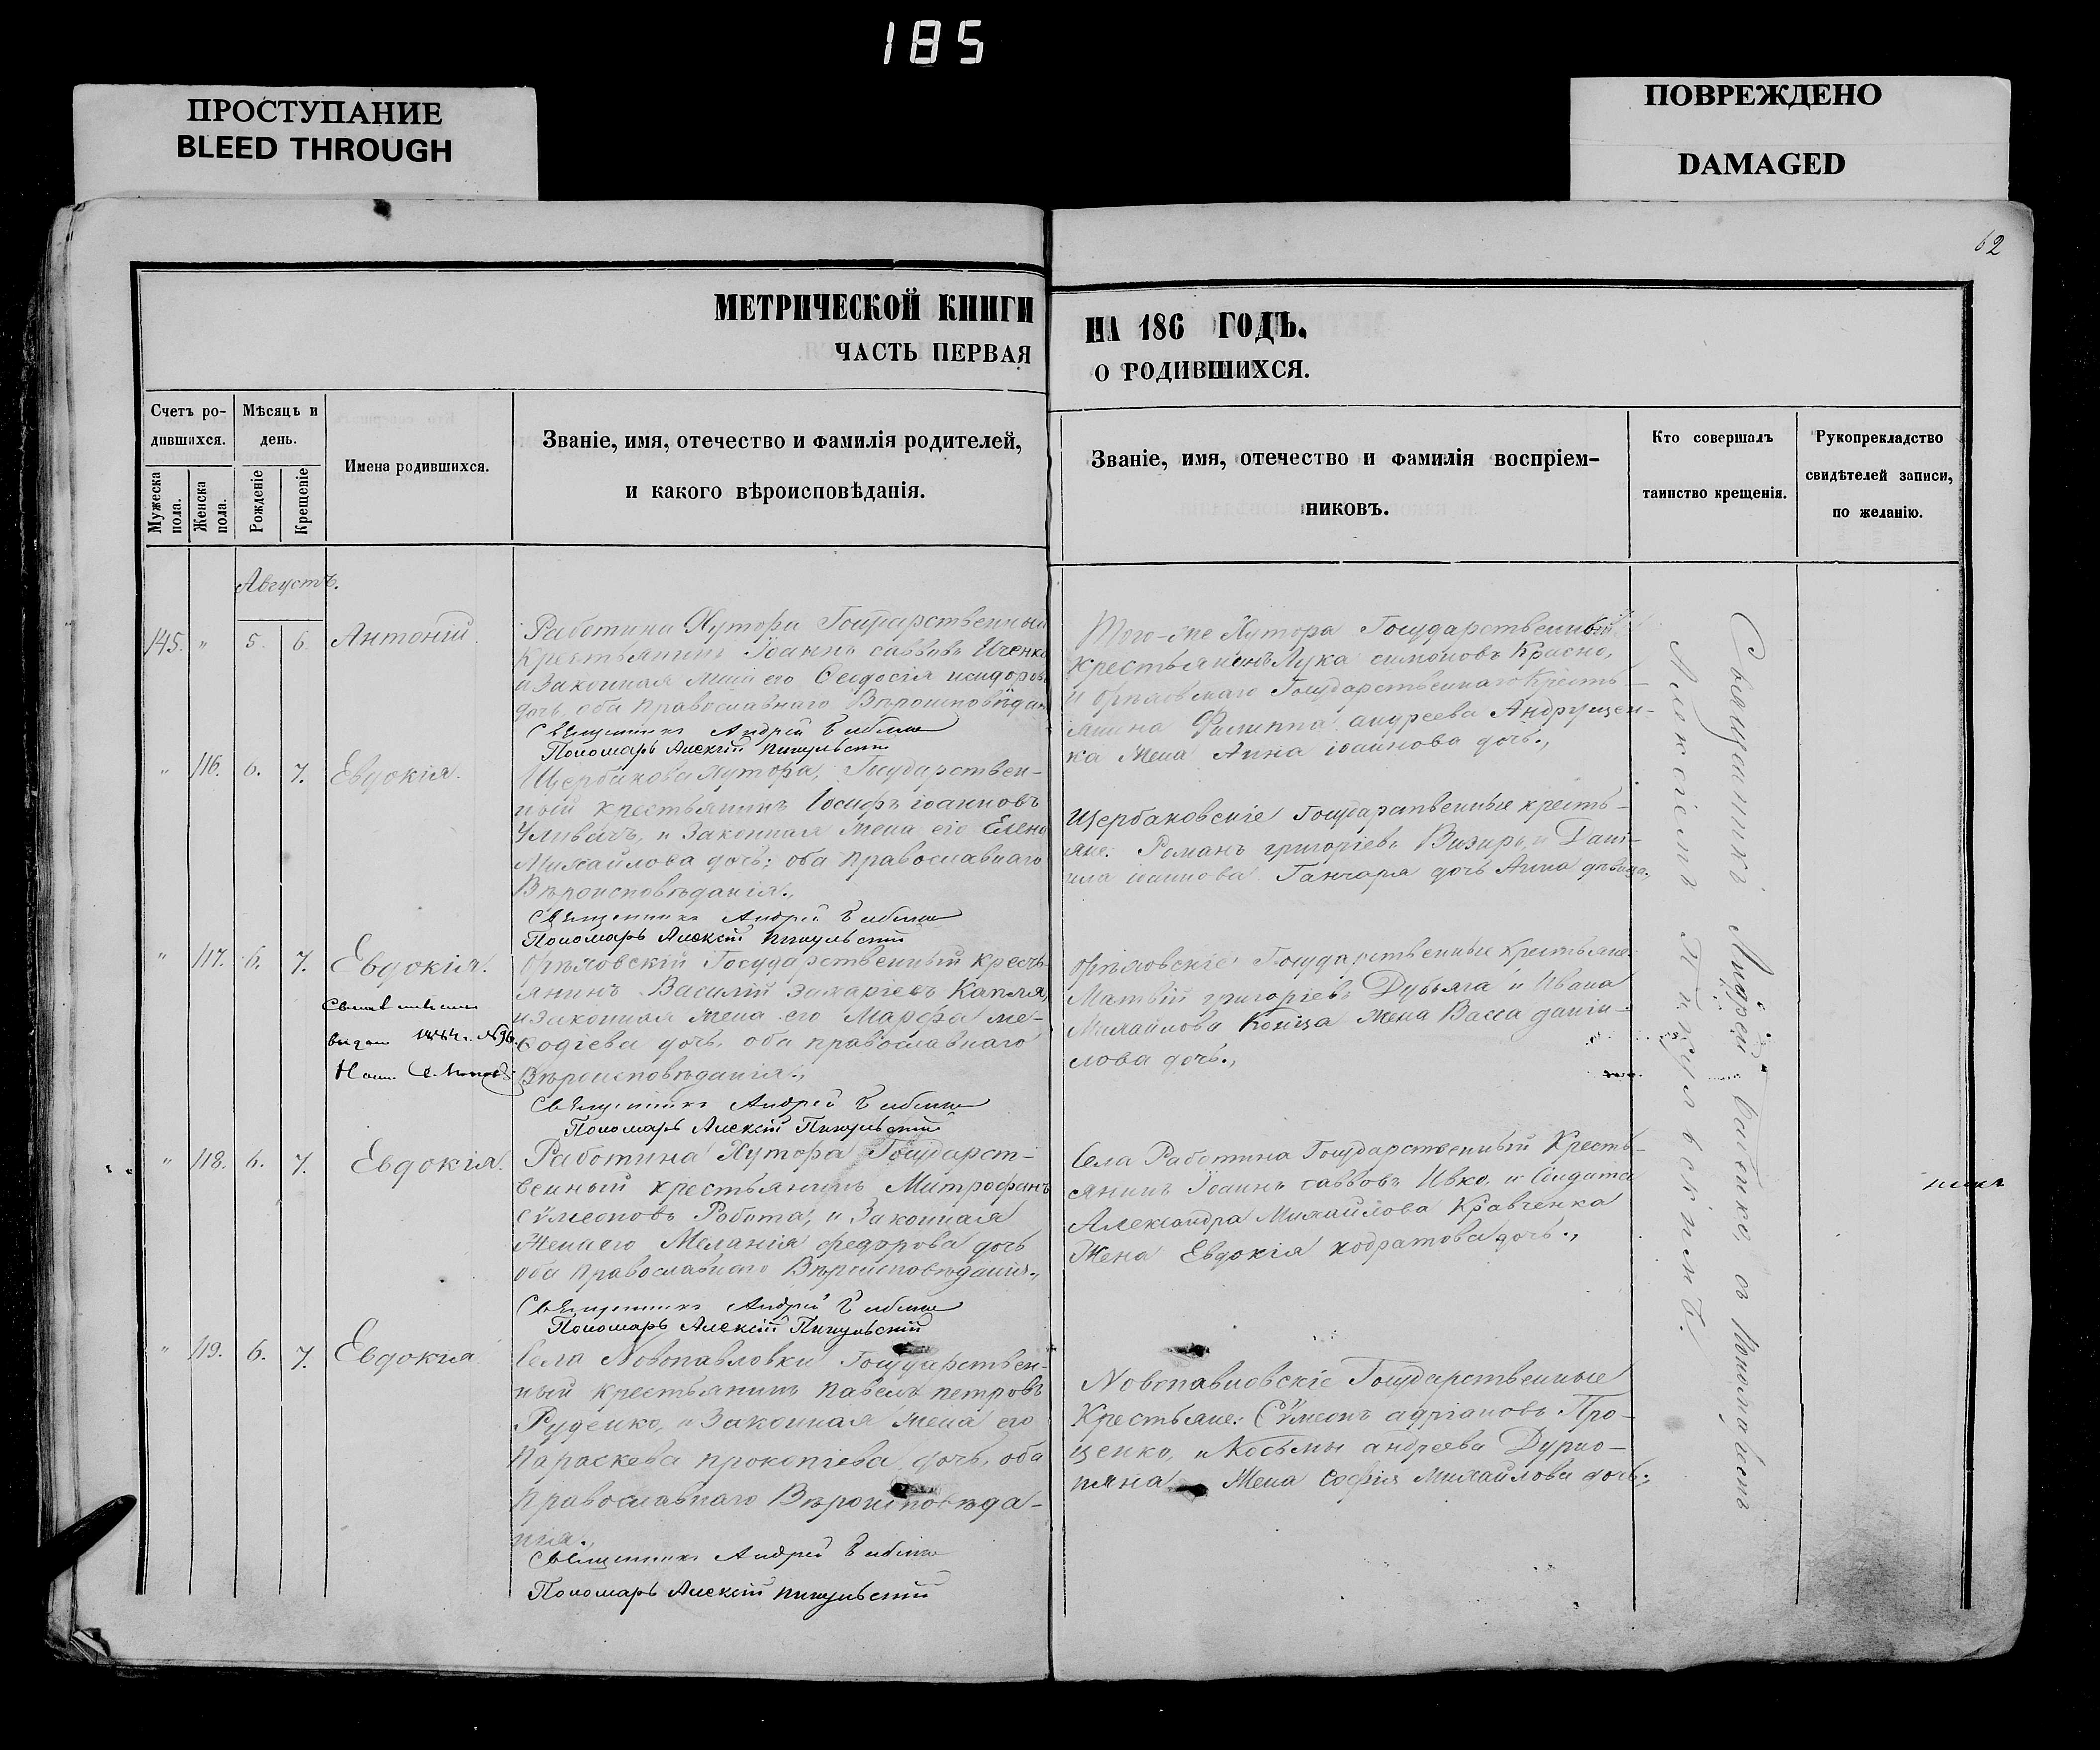 185
ПРОСТУПАНИЕ
BLEED THROUGH
ПОВРЕЖДЕНО
DAMAGED
62
МЕТРИЧЕСКОЙ КНИГИ
ЧАСТЬ ПЕРВАЯ
НА 186 ГОДЪ.
О РОДИВШИХСЯ.
Счетъ ро-
дившихся.
Мужеска пола.
Женска пола.
Мѣсяцъ и
день.
Рожденіе
Крещеніе
Имена родившихся.
Званіе, имя, отечество и фамилія родителей,
и какого вѣроисповѣданія.
Званіе, имя, отечество и фамилія воспріем-
никовъ.
Кто совершалъ
таинство крещенія.
Рукоприкладство
свидѣтелей записи,
по желанію.
Августъ.
145. " 5. 6. Антоній.
Работина Хутора Государственный
Крестьянинъ Іоаннъ саввовъ
и Законная жена его Ѳеодосія исидоров
дочь, оба православнаго Вѣроисповѣдан
Священникъ Андрей
Пономарь Алексій
Того-же Хутора Государственный
крестьянинъ Лука симоновъ Красно,
и Орѣховскаго Государственнаго Кресть-
янина Филиппа андреева Андрущен-
ка Жена Анна іоаннова дочь.,
" 116. 6. 7. Евдокія.
Щербакова Хутора, Государствен-
ный крестьянинъ Іосифъ іоанновъ
и Законная жена его Елена
Михайлова дочь; оба православнаго
Вѣроисповѣданія.,
Священникъ Андрей
Пономарь Алексій
Щербаковскіе Государственные кресть-
яне: Романъ григоріевъ Визирь, и Дані-
ила іоаннова Ганчаря дочь Анна дѣвица.,
" 117. 6. 7. Евдокія.
Орѣховскій Государственный кресть-
янинъ Василій захаріевъ Капля,
и законная жена его Марѳа ме-
ѳодіева дочь, оба православнаго
Вѣроисповѣданія.,
Священникъ Андрей
Пономарь Алексій
№ 96.
Орѣховскіе Государственные крестьяне:
Матвій григоріевъ Дубяга и Ивана
Михайлова Коница жена Васса даніи-
лова дочь.,
" 118. 6. 7. Евдокія.
Работина Хутора Государст-
венный крестьянинъ Митрофанъ
сѵмеоновъ Робота, и Законная
Жена его Меланія федорова дочь
оба православнаго Вѣроисповѣданія.,
Священникъ Андрей
Пономарь Алексій
Села Работина Государственный Кресть-
янинъ Іоаннъ саввовъ Ивко, и Солдата
Александра Михайлова Кравченка
Жена Евдокія кодратова дочь.,
" 119. 6. 7. Евдокія
Села Новопавловки Государствен-
ный крестьянинъ павелъ петровъ
Руденко, и Законная жена его
Параскева прокопіева дочь, оба
православнаго Вѣроисповѣда-
нія.,
Священникъ Андрей
Пономарь Алексій
Новопавловскіе Государственные
Крестьяне: Сѵмеонъ адріановъ Про-
ценко, и Косьмы андреева Дурно-
пяна Жена софія Михайлова дочь.,
Священникъ Андрей съ Пономаремъ
Алексіемъ